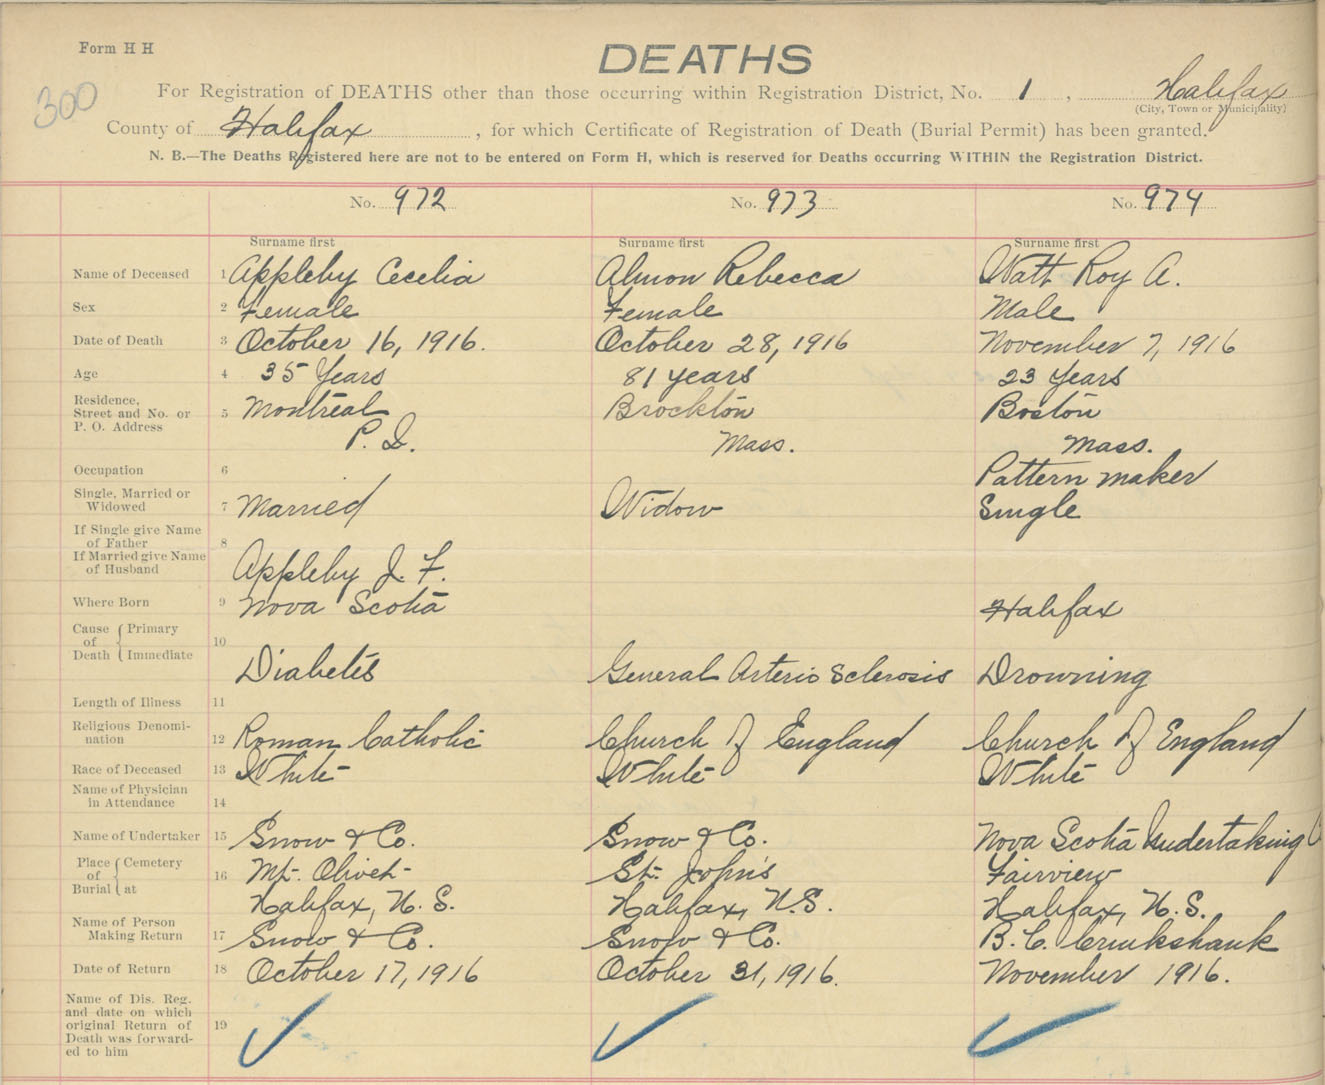 Form H H
DEATHS
300
For Registration of DEATHS other than those occurring within Registration District, No. 1, Halifax
(City, Town or Municipality)
County of Halifax, for which Certificate of Registration of Death (Burial Permit) has been granted.
N. B.—The Deaths Registered here are not to be entered on Form H, which is reserved for Deaths occurring WITHIN the Registration District.
No. 972 No. 973 No. 974
Surname first Surname first Surname first
Name of Deceased 1 Appleby Cecelia Almon Rebecca Watt Roy A.
Sex 2 Female Female Male
Date of Death 3 October 16, 1916. October 28, 1916 November 7, 1916
Age 4 35 Years 81 years 23 Years
Residence,
Street and No. or 5 Montreal Brockton Boston
P. O. Address
P. Q. Mass. Mass.
Occupation 6 Pattern maker
Single, Married or
Widowed 7 Married Widow Single
If Single give Name
of Father
8
If Married give Name
of Husband Appleby J. F.
Where Born 9 Nova Scotia Halifax
Cause of Death { Primary 10
Immediate Diabetes General Arterio Sclerosis Drowning
Length of Illness 11
Religious Denomi-
nation 12 Roman Catholic Church of England Church of England
Race of Deceased 13 White White White
Name of Physician
in Attendance 14
Name of Undertaker 15 Snow & Co. Snow & Co. Nova Scotia Undertaking
Place of Burial { Cemetery 16 Mt. Olivet St. John's Fairview
at Halifax, N. S. Halifax, N.S. Halifax, N. S.
Name of Person
Making Return 17 Snow & Co. Snow & Co. B. C. Cruikshank
Date of Return 18 October 17, 1916 October 31, 1916. November 1916.
Name of Dis. Reg.
and date on which
original Return of 19
Death was forward-
ed to him